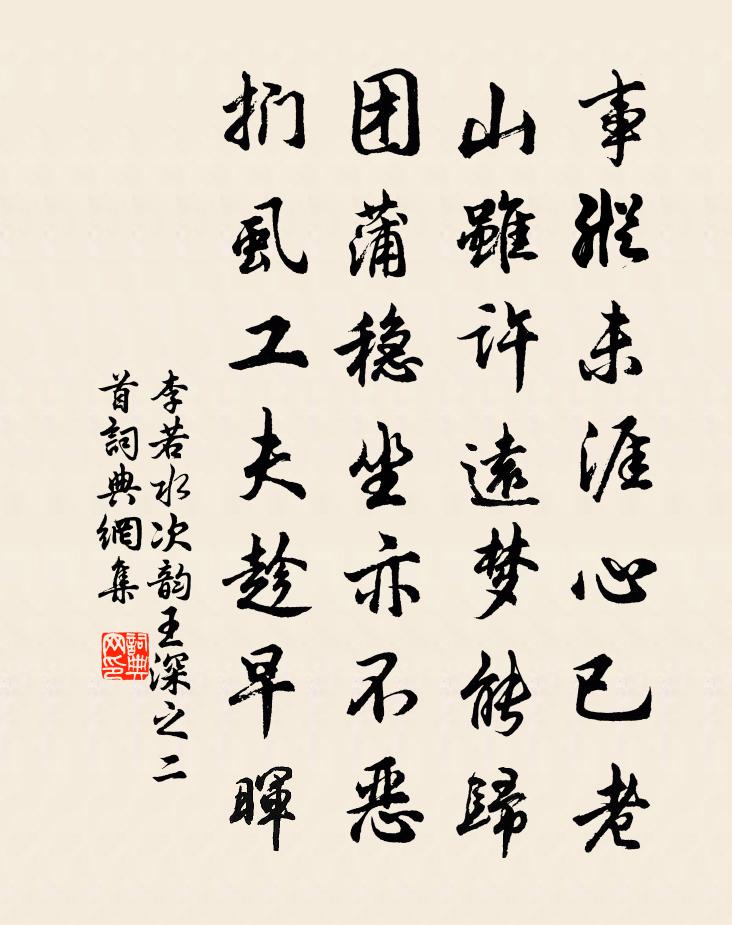 事縱未涯心已老
山雖許遠梦能歸
团蒲稳坐亦不恶
捫虱工夫趁早暉
李若水次韵王深之二
首詞典網集
詞典
网印